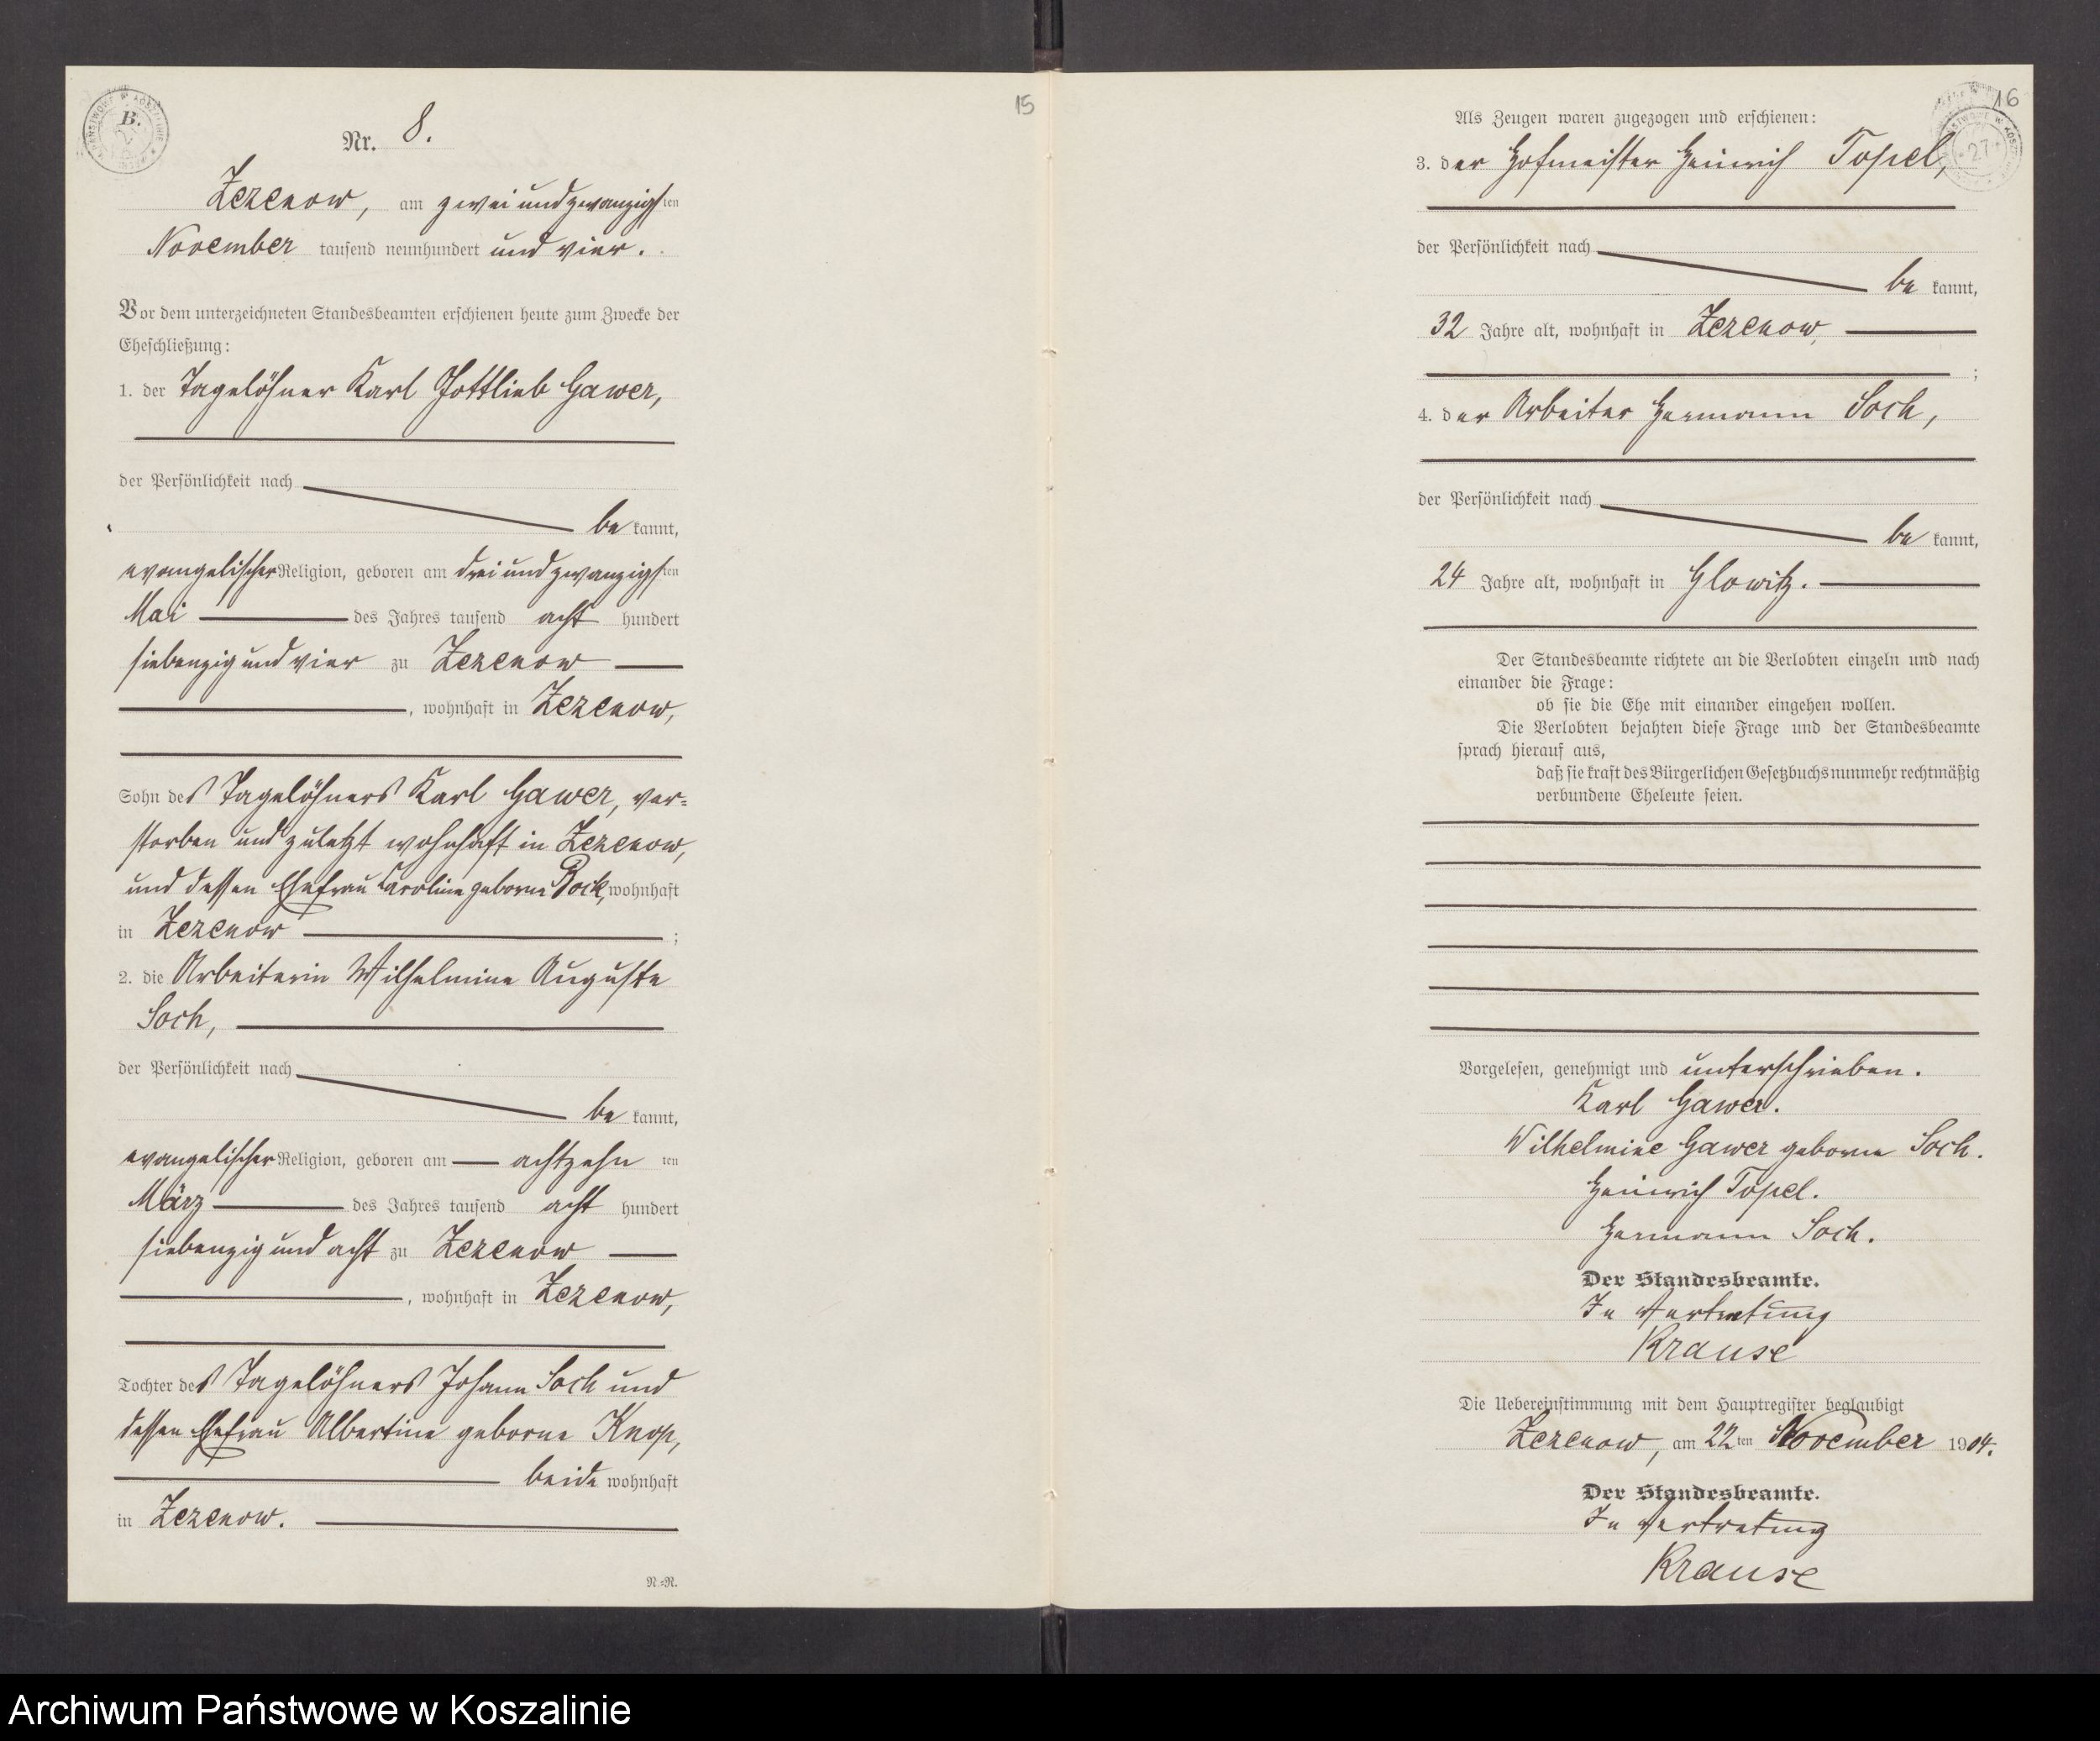 B.
Nr. 8.
Zezenow, am zweiundzwanzigsten
November tausend neunhundert und vier.
Vor dem unterzeichneten Standesbeamten erschienen heute zum Zwecke der
Eheschließung:
1. der Tagelöhner Karl Gottlieb Gawer,
der Persönlichkeit nach
be kannt,
evangelischer Religion, geboren am dreiundzwanzigsten
Mai des Jahres tausend acht hundert
siebenzig und vier zu Zezenow
, wohnhaft in Zezenow,
Sohn des Tagelöhners Karl Gawer, ver-
storben und zuletzt wohnhaft in Zezenow,
und dessen Ehefrau Caroline geborne Bock, wohnhaft
in Zezenow ;
2. die Arbeiterin Wilhelmine Auguste
Soch,
der Persönlichkeit nach
be kannt,
evangelischer Religion, geboren am achtzehn ten
März des Jahres tausend acht hundert
siebenzig und acht zu Zezenow
, wohnhaft in Zezenow,
Tochter des Tagelöhners Johann Soch und
dessen Ehefrau Albertine geborne Knop,
beide wohnhaft
in Zezenow.
N.=R.
15
16
27
Als Zeugen waren zugezogen und erschienen:
3. der Hofmeister Heinrich Topel,
der Persönlichkeit nach
be kannt,
32 Jahre alt, wohnhaft in Zezenow,
;
4. der Arbeiter Hermann Soch,
der Persönlichkeit nach
be kannt,
24 Jahre alt, wohnhaft in Glowitz.
Der Standesbeamte richtete an die Verlobten einzeln und nach
einander die Frage:
ob sie die Ehe mit einander eingehen wollen.
Die Verlobten bejahten diese Frage und der Standesbeamte
sprach hierauf aus,
daß sie kraft des Bürgerlichen Gesetzbuchs nunmehr rechtmäßig
verbundene Eheleute seien.
Vorgelesen, genehmigt und unterschrieben.
Karl Gawer.
Wilhelmine Gawer geborne Soch.
Heinrich Topel.
Hermann Soch.
Der Standesbeamte.
In Vertretung
Krause
Die Uebereinstimmung mit dem Hauptregister beglaubigt
Zezenow, am 22ten November 1904.
Der Standesbeamte.
In Vertretung
Krause
Archiwum Państwowe w Koszalinie